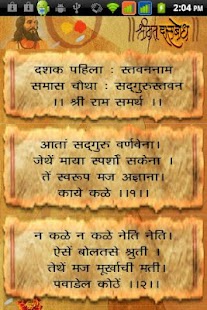 2:04 PM
श्रीमत् दासबोध
दशक पहिला : स्तवननाम
समास चौथा : सद्गुरुस्तवन
।। श्री राम समर्थ ।।
आतां सद्गुरु वर्णवेना ।
जेथें माया स्पर्शों सकेना ।
तें स्वरूप मज अज्ञाना ।
काये कळे ।।१।।
न कळे न कळे नेति नेति ।
ऐसें बोलतसे श्रुती ।
तेथें मज मूर्खाची मती ।
पवाडेल कोठें ।।२।।